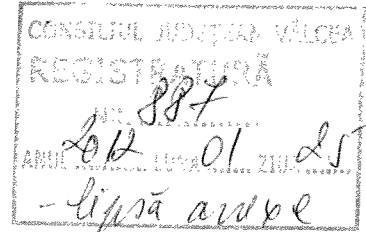 CONSILIUL JUDEŢEAN VÂLCEA
REGISTRATURĂ
NR. 887
ANUL 2012 LUNA 01 ZIUA 25
- lipsă anexe